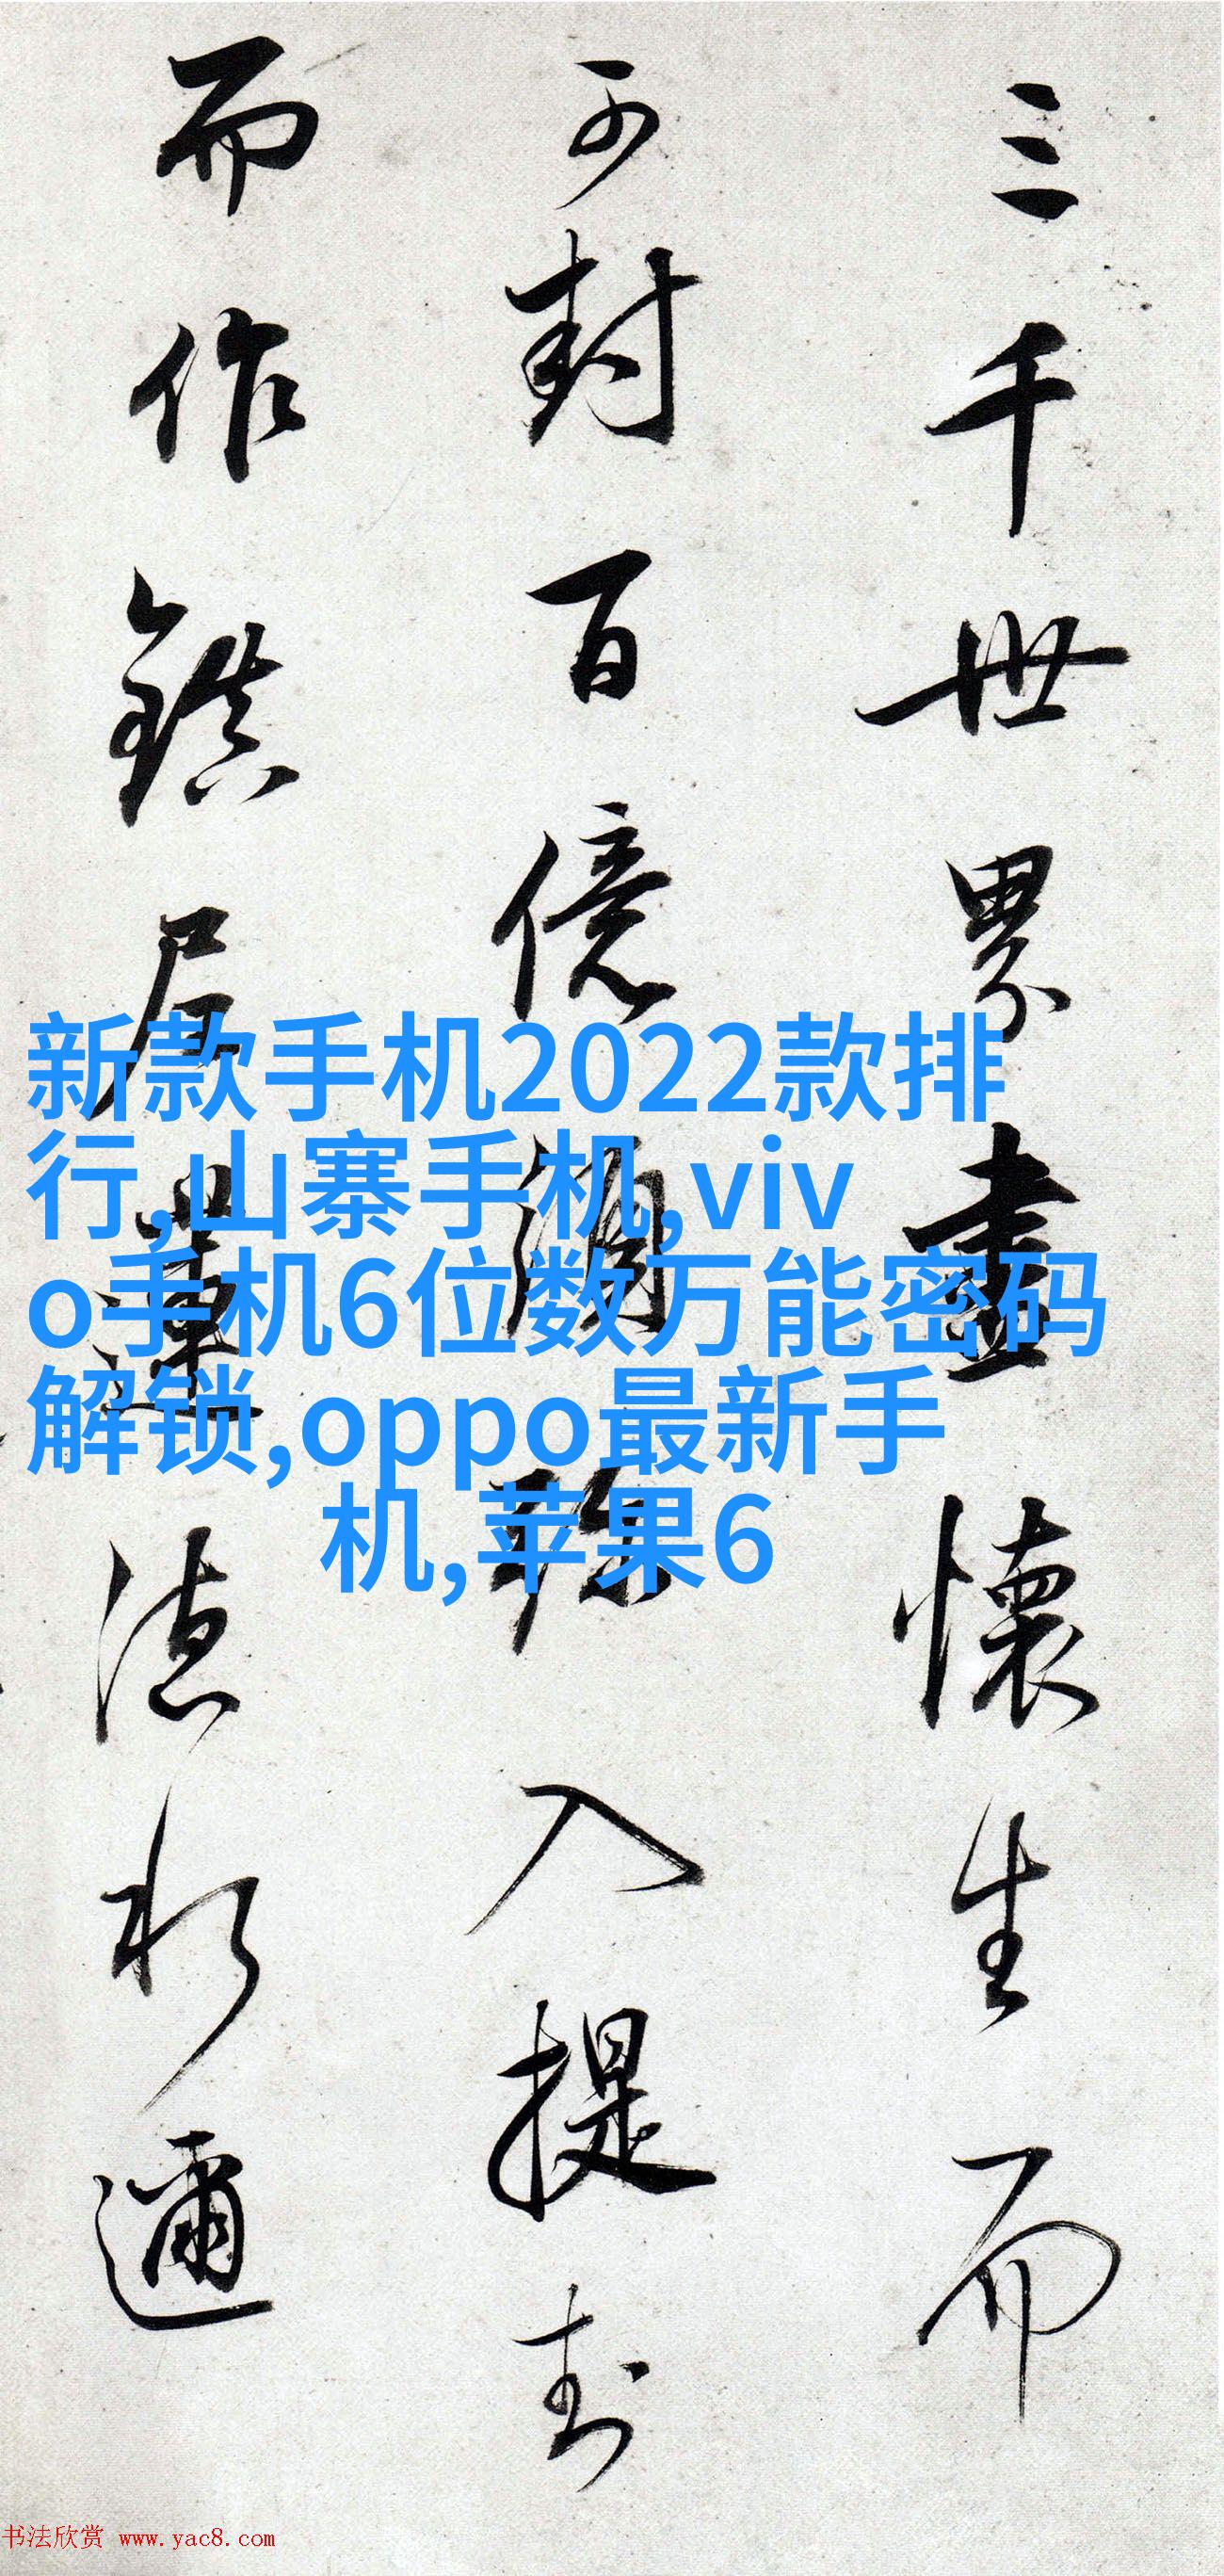 三千世界盡懷生而
可封百億須弥入提封
而作鎮邇
新款手机2022款排
行,山寨手机,viv
o手机6位数万能密码
解锁,oppo最新手
机,苹果6
书法欣赏 www.yac8.com